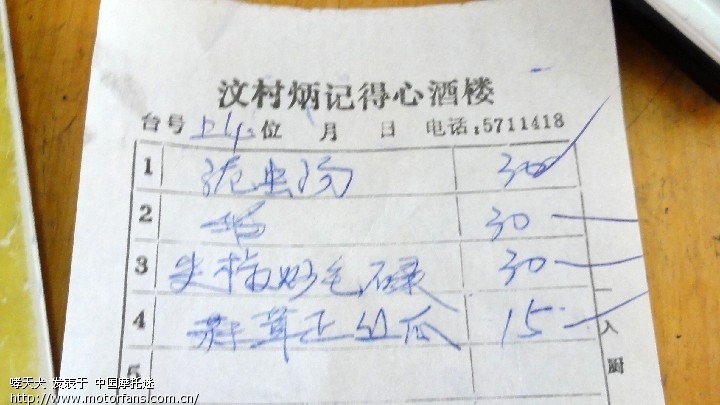 汶村炳记得心酒楼
台号 位 月 日 电话:5711418
1 泥虫汤 30
2 30
3 尖椒炒毛 30
4 蒜茸正丝瓜 15
5
入厨
哮天犬 发表于 中国摩托迷
http://www.motorfans.com.cn/